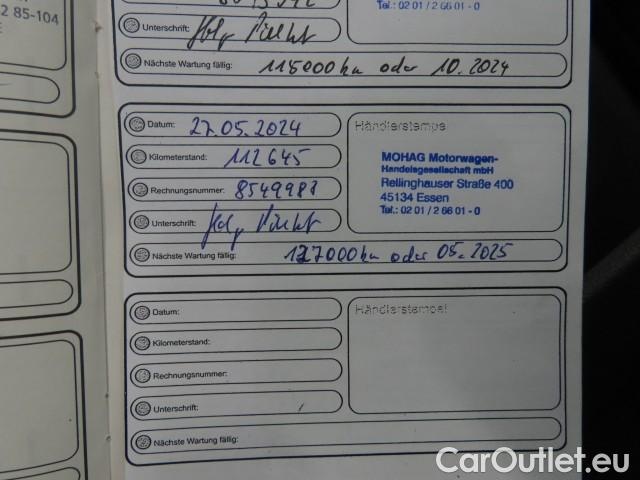 2 85-104
Tel.: 02 01 / 2 66 01 - 0
Unterschrift:
Nächste Wartung fällig: 115000 km oder 10.2024
Datum: 27.05.2024
Händlerstempel
Kilometerstand: 112645
MOHAG Motorwagen-
Handelsgesellschaft mbH
Rellinghauser Straße 400
45134 Essen
Tel.: 02 01 / 2 66 01 - 0
Rechnungsnummer:
Unterschrift:
Nächste Wartung fällig: 127000 km oder 05.2025
Datum:
Händlerstempel
Kilometerstand:
Rechnungsnummer:
Unterschrift:
Nächste Wartung fällig:
CarOutlet.eu